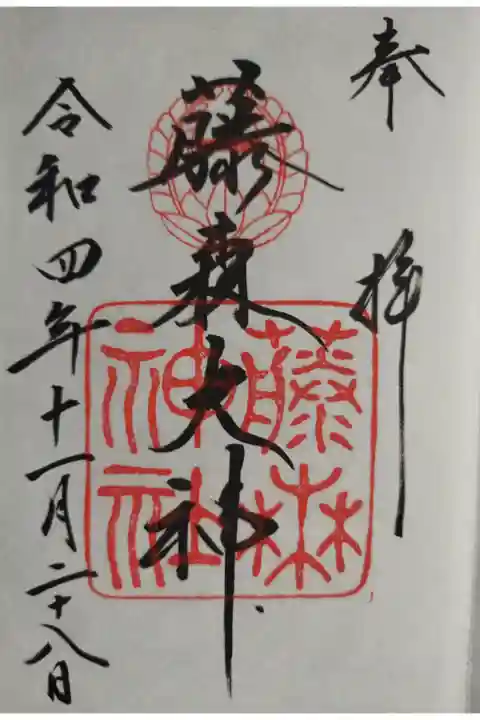 奉拝
藤森大神
藤森神社
令和四年十一月二十八日